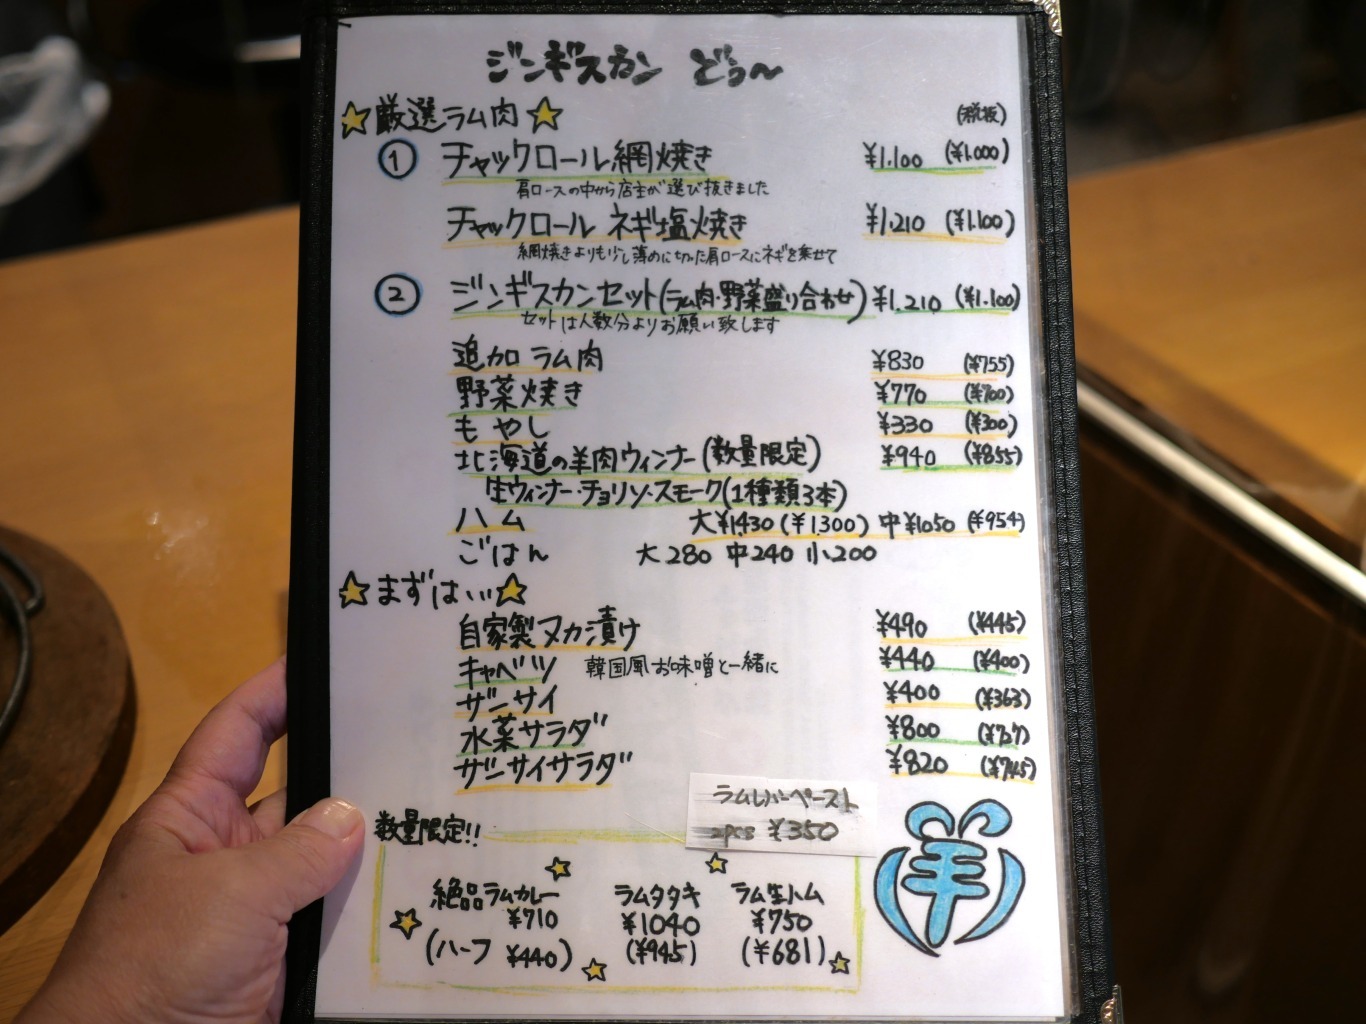 ジンギスカン どぅ〜
厳選ラム肉 (税抜)
① チャックロール網焼き ¥1.100 (¥1.000)
肩ロースの中から店主が選び抜きました
チャックロール ネギ塩焼き ¥1.210 (¥1.100)
網焼きよりも少し薄めに切った肩ロースにネギを乗せて
② ジンギスカンセット(ラム肉・野菜盛り合わせ) ¥1.210 (¥1.100)
セットは人数分よりお願い致します
追加 ラム肉 ¥830 (¥755)
野菜焼き ¥770 (¥700)
もやし ¥330 (¥300)
北海道の羊肉ウィンナー(数量限定) ¥940 (¥855)
生ウィンナー・チョリソ・スモーク(1種類3本)
ハム 大¥1430(¥1.300) 中¥1050 (¥954)
ごはん 大280 中240 小200
まずは...
自家製ヌカ漬け ¥490 (¥445)
キャベツ 韓国風お味噌と一緒に ¥440 (¥400)
ザーサイ ¥400 (¥363)
水菜サラダ ¥800 (¥727)
ザーサイサラダ ¥820 (¥745)
ラムレバーペースト
2pcs ¥350
数量限定!!
絶品ラムカレー ラムタタキ ラム生ハム
¥710 ¥1040 ¥750
(ハーフ ¥440) (¥945) (¥681)
羊